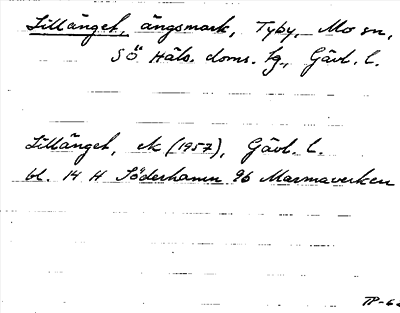 Lillänget, ängsmark, Tyby, Mo sn,
SÖ Häls. doms. fg., Gävl. l.
Lillänget, ek (1957), Gävl. l.
bl. 14 H Söderhamn 9b Marmaverken